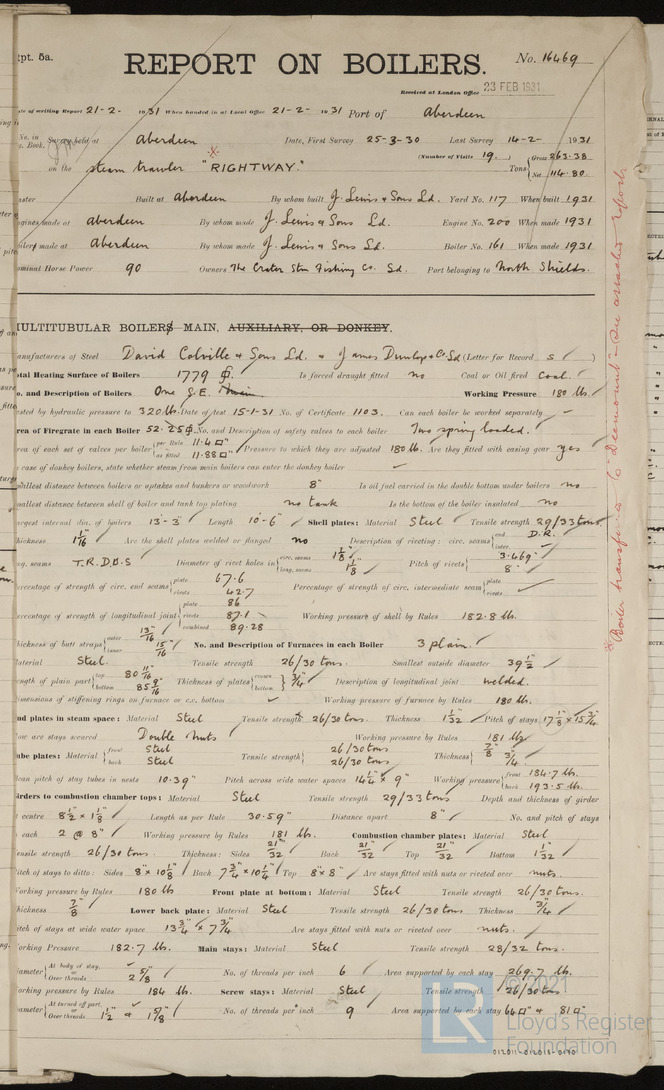 Rpt. 5a.
REPORT ON BOILERS.
No. 16469
Received at London Office 23 FEB 1931
Date of writing Report 21-2-1931 When handed in at Local Office 21-2-1931 Port of Aberdeen
No. in Reg. Book. Survey held at Aberdeen Date, First Survey 25-3-30 Last Survey 14-2-1931
(Number of Visits 19.)
on the steam trawler "RIGHTWAY." Tons { Gross 263.38 Net 114.80
Master Built at Aberdeen By whom built J. Lewis & Sons Ld. Yard No. 117 When built 1931
Engines made at Aberdeen By whom made J. Lewis & Sons Ld. Engine No. 200 When made 1931
Boilers made at Aberdeen By whom made J. Lewis & Sons Ld. Boiler No. 161 When made 1931
Nominal Horse Power 90 Owners The Crater Stm Fishing Co. Ld. Port belonging to North Shields.
MULTITUBULAR BOILERS MAIN, AUXILIARY, OR DONKEY.
Manufacturers of Steel David Colville & Sons Ld. & James Dunlop & Co. Ld (Letter for Record S)
Total Heating Surface of Boilers 1779 Is forced draught fitted no Coal or Oil fired Coal.
No. and Description of Boilers One S.E. Working Pressure 180 lbs.
Tested by hydraulic pressure to 320 lbs. Date of test 15-1-31 No. of Certificate 1103. Can each boiler be worked separately
Area of Firegrate in each Boiler 52.25 No. and Description of safety valves to each boiler Two spring loaded.
Area of each set of valves per boiler { per Rule 11.4 □" as fitted 11.88 □" Pressure to which they are adjusted 180 lb. Are they fitted with easing gear yes
In case of donkey boilers, state whether steam from main boilers can enter the donkey boiler
Smallest distance between boilers or uptakes and bunkers or woodwork 8" Is oil fuel carried in the double bottom under boilers no
Smallest distance between shell of boiler and tank top plating no tank Is the bottom of the boiler insulated no
Largest internal dia. of boilers 13-3" Length 10-6" Shell plates: Material Steel Tensile strength 29/33 tons
Thickness 1 1/16 Are the shell plates welded or flanged no Description of riveting: circ. seams { end D.R. inter.
long. seams T.R.D.B.S Diameter of rivet holes in { circ. seams 1 1/8" long. seams 1 1/8" Pitch of rivets { 3.469" 8"
Percentage of strength of circ. end seams { plate 67.6 rivets 42.7 Percentage of strength of circ. intermediate seam { plate rivets
Percentage of strength of longitudinal joint { plate 86 rivets 87.1 combined 89.28 Working pressure of shell by Rules 182.8 lb.
Thickness of butt straps { outer 13/16 inner 15/16 No. and Description of Furnaces in each Boiler 3 plain.
Material Steel Tensile strength 26/30 tons. Smallest outside diameter 39 1/2"
Length of plain part { top 80 11/16 bottom 85 9/16 Thickness of plates { crown bottom } 3/4" Description of longitudinal joint welded.
Dimensions of stiffening rings on furnace or c.c. bottom Working pressure of furnace by Rules 180 lb.
End plates in steam space: Material Steel Tensile strength 26/30 tons. Thickness 1 1/32 Pitch of stays 17 1/8" x 15 3/4"
How are stays secured Double Nuts Working pressure by Rules 181 lb
Tube plates: Material { front Steel back Steel Tensile strength { 26/30 tons 26/30 tons Thickness { 7/8" 3/4"
Mean pitch of stay tubes in nests 10.39" Pitch across wide water spaces 14 1/4" x 9" Working pressure { front 184.7 lb. back 193.5 lb.
Girders to combustion chamber tops: Material Steel Tensile strength 29/33 tons Depth and thickness of girder
at centre 8 1/2" x 1 1/8" Length as per Rule 30.59" Distance apart 8" No. and pitch of stays
in each 2 @ 8" Working pressure by Rules 181 lb. Combustion chamber plates: Material Steel
Tensile strength 26/30 tons. Thickness: Sides 21/32" Back 21/32" Top 21/32" Bottom 1 1/32"
Pitch of stays to ditto: Sides 8" x 10 1/8" Back 7 3/4" x 10 1/4" Top 8" x 8" Are stays fitted with nuts or riveted over nuts.
Working pressure by Rules 180 lb Front plate at bottom: Material Steel Tensile strength 26/30 tons.
Thickness 7/8" Lower back plate: Material Steel Tensile strength 26/30 tons Thickness 3/4"
Pitch of stays at wide water space 13 3/4" x 7 3/4" Are stays fitted with nuts or riveted over nuts.
Working Pressure 182.7 lb. Main stays: Material Steel Tensile strength 28/32 tons.
Diameter { At body of stay, or Over threads 2 5/8" No. of threads per inch 6 Area supported by each stay 269.7 □".
Working pressure by Rules 184 lb. Screw stays: Material Steel Tensile strength 26/30 tons
Diameter { At turned off part, or Over threads 1 1/2" & 1 5/8" No. of threads per inch 9 Area supported by each stay 64 □" & 81 □"
* Boiler transferred to "Deemount" See attached report
© 2021
LR
Lloyd's Register
Foundation
012011-012018-0190